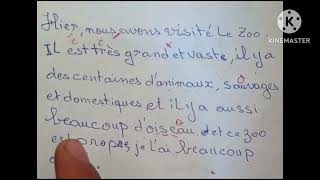 Hier, nous avons visité Le Zoo
Il est très grand et vaste, il y a
des centaines d'animaux, sauvages
et domestiques et il y a aussi
beaucoup d'oiseau, et ce zoo
est propre, je l'ai beaucoup
KINEMASTER